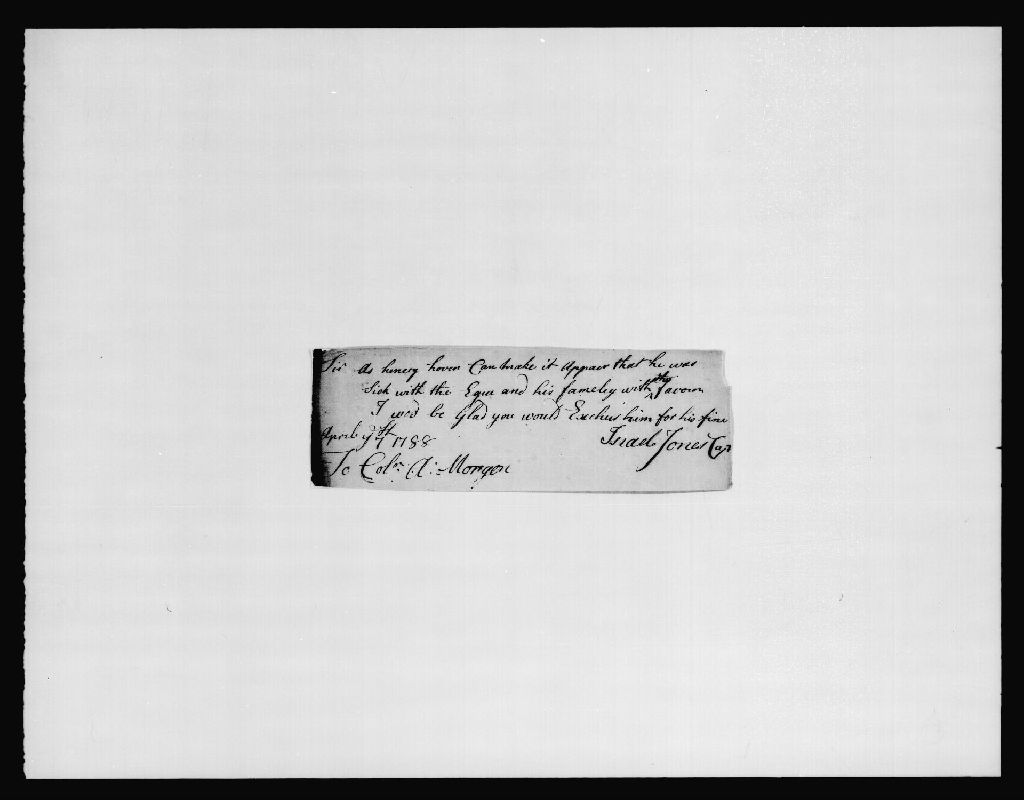 Sir As henery hoven Can make it Appear that he was
Sick with the Egue and his fameley with the favour
I wod be Glad you would Exchus him for his fine
April 9th 1788 Israel Jones Cap
To Coln A: Morgen